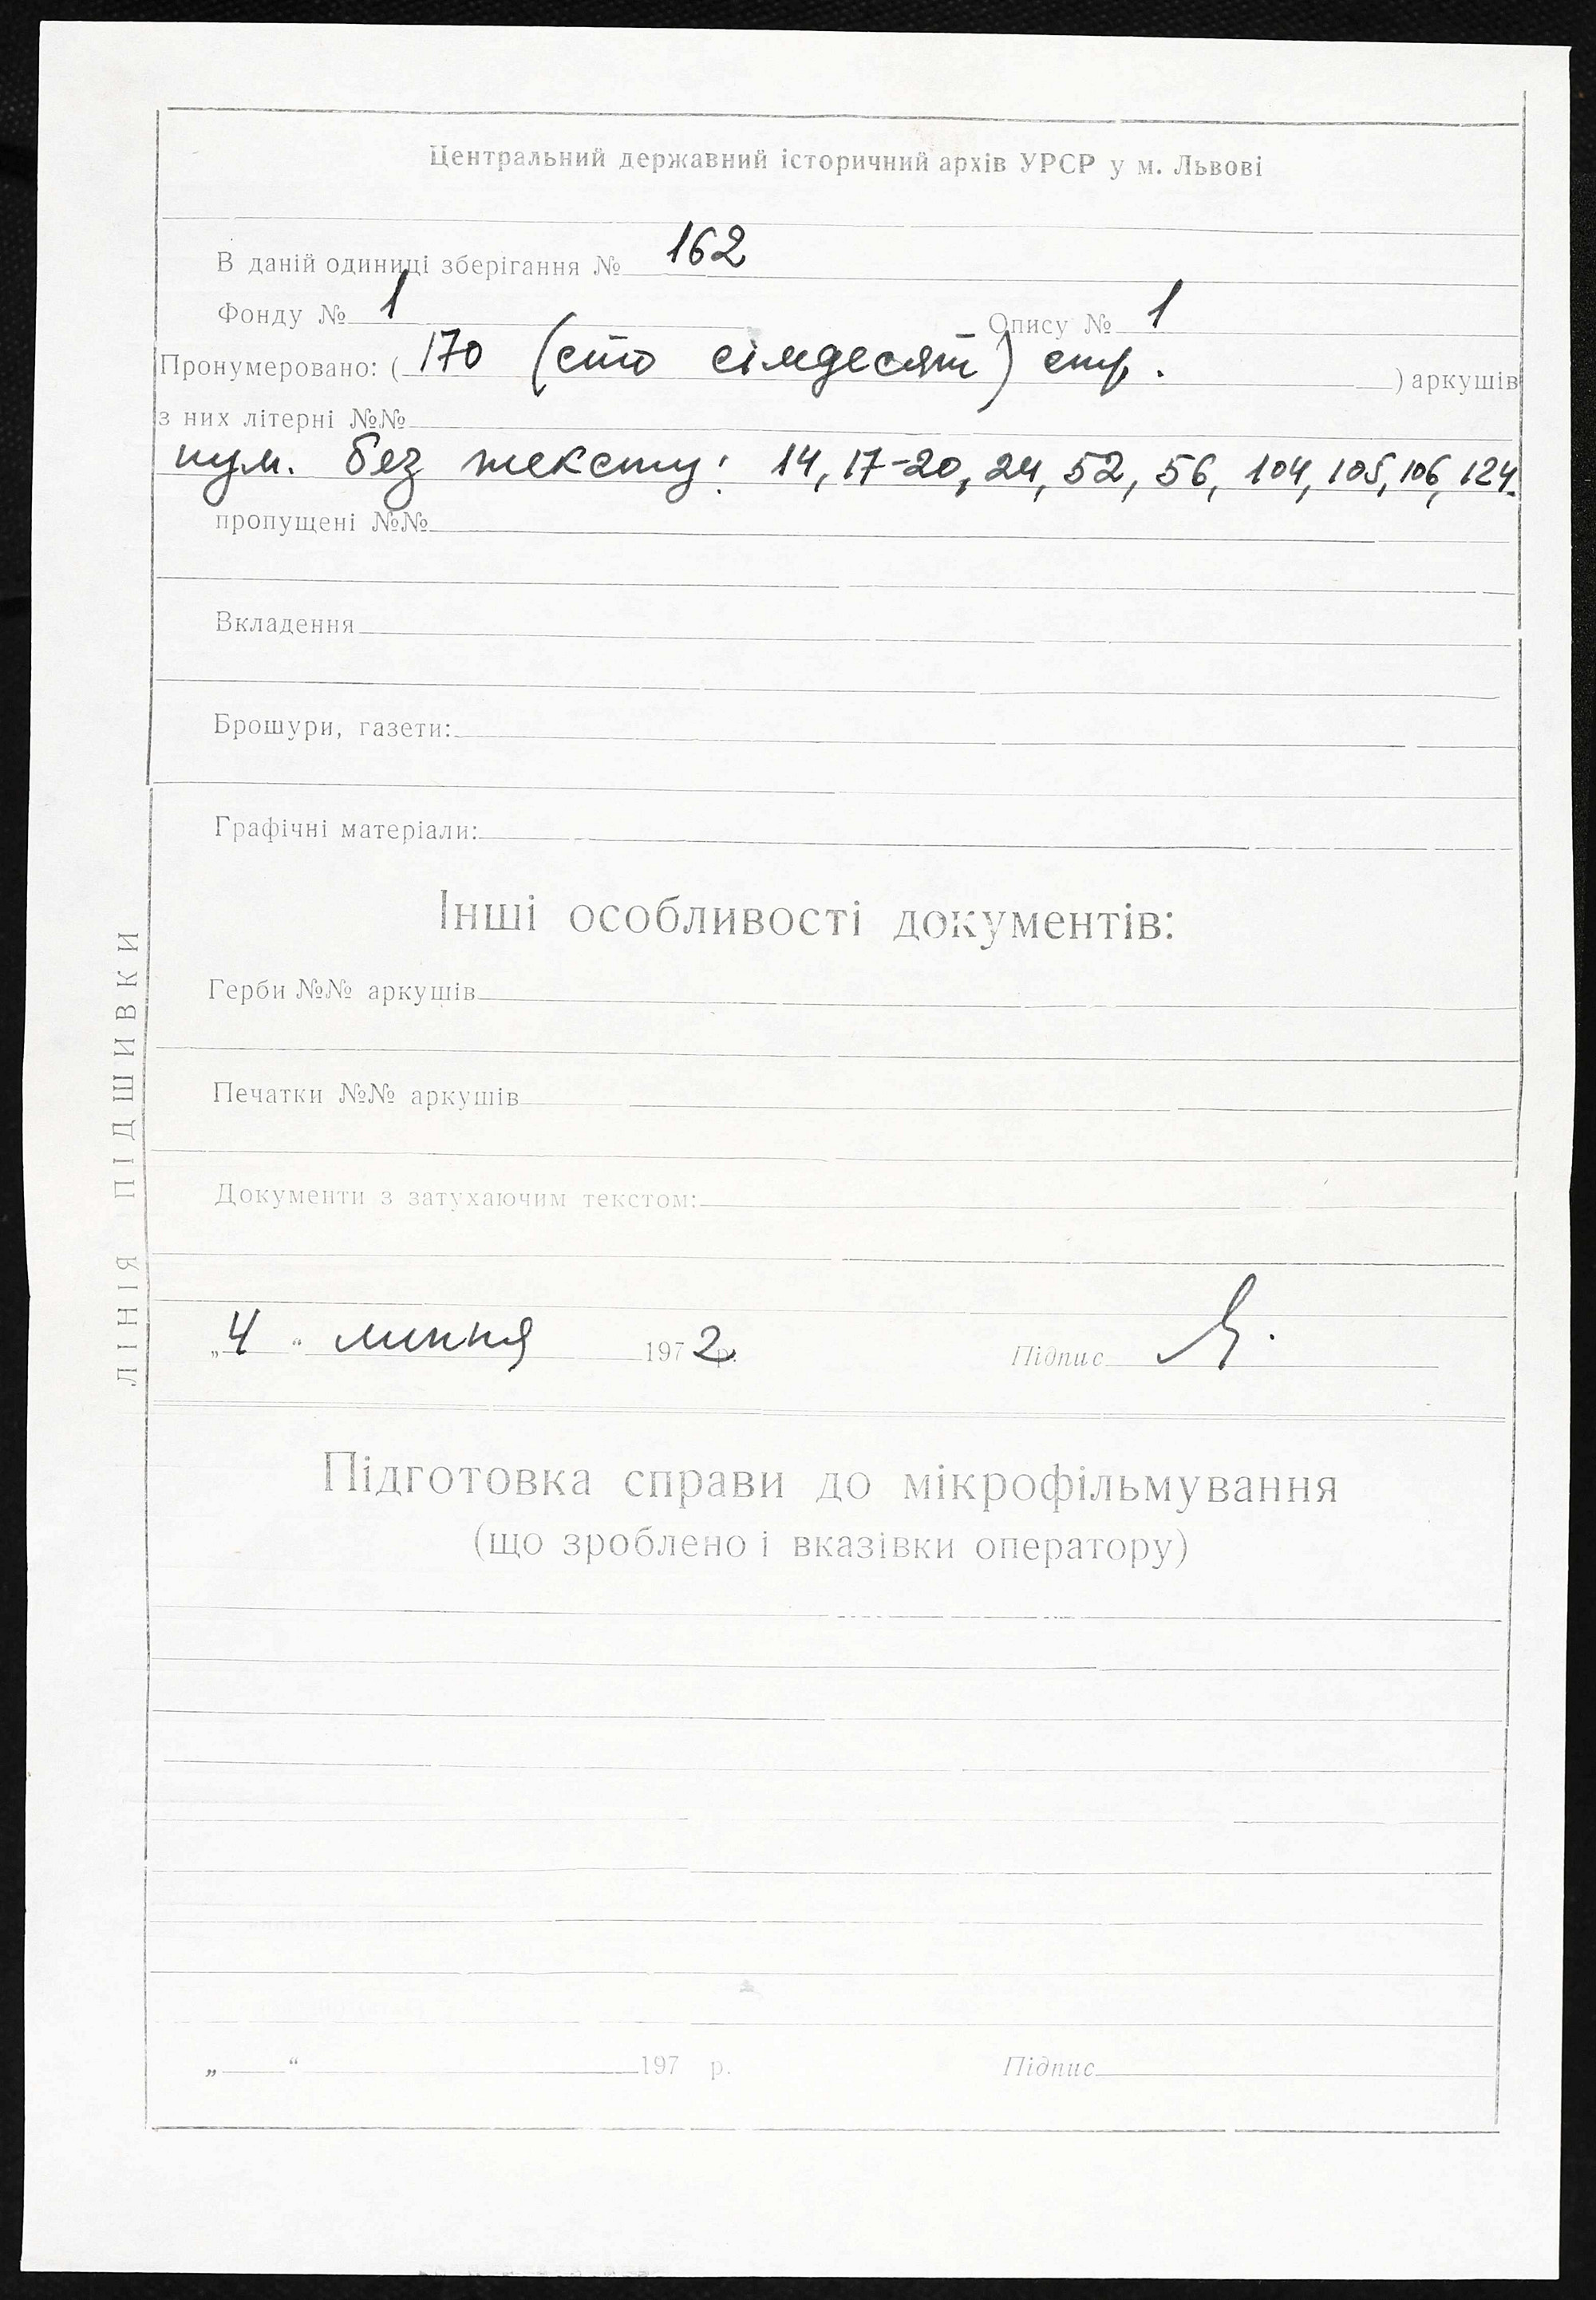 Центральний державний історичний архів УРСР у м. Львові
В даній одиниці зберігання № 162
Фонду № 1 Опису № 1
Пронумеровано: ( 170 (сто сімдесят) стр. ) аркушів
з них літерні №№
нум. без тексту: 14, 17-20, 24, 52, 56, 104, 105, 106, 124.
пропущені №№
Вкладення
Брошури, газети:
Графічні матеріали:
Інші особливості документів:
Герби №№ аркушів
Печатки №№ аркушів
Документи з затухаючим текстом:
„4“ липня 1972 р. Підпис
ЛІНІЯ ПІДШИВКИ
Підготовка справи до мікрофільмування
(що зроблено і вказівки оператору)
„ “ 197 р. Підпис